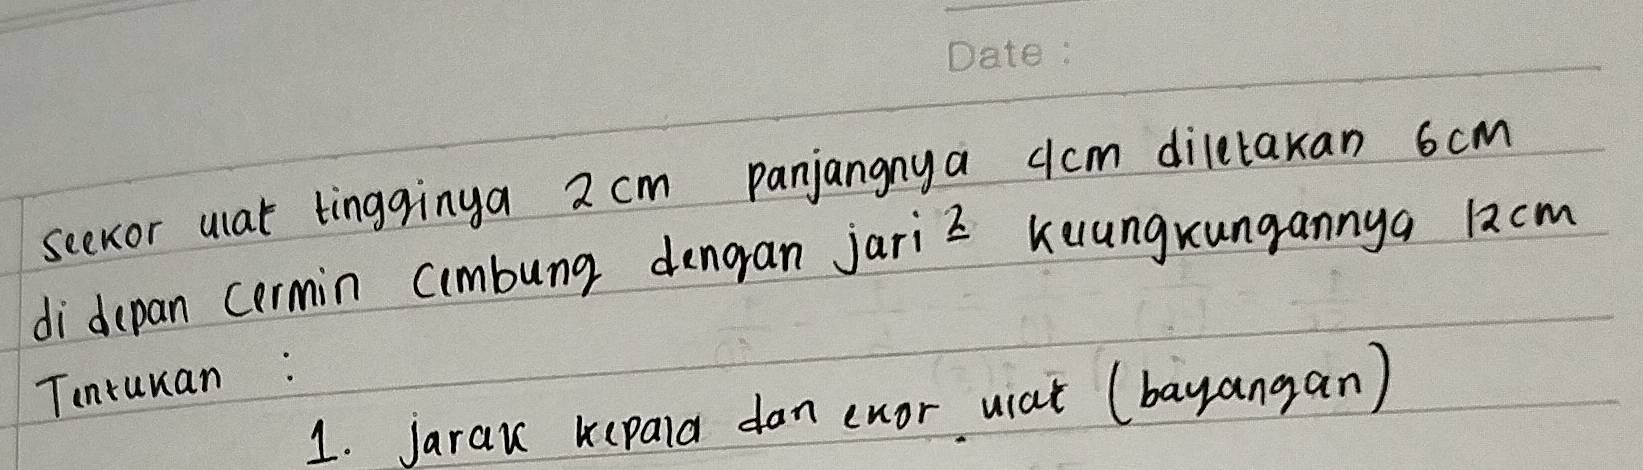 Date :
seekor ulat tingginya 2 cm panjangnya 4cm diletakan 6cm
di depan cermin cembung dengan jari² kelungkungannya 12cm
Tentukan :
1. jarak kepala dan ekor ulat (bayangan)